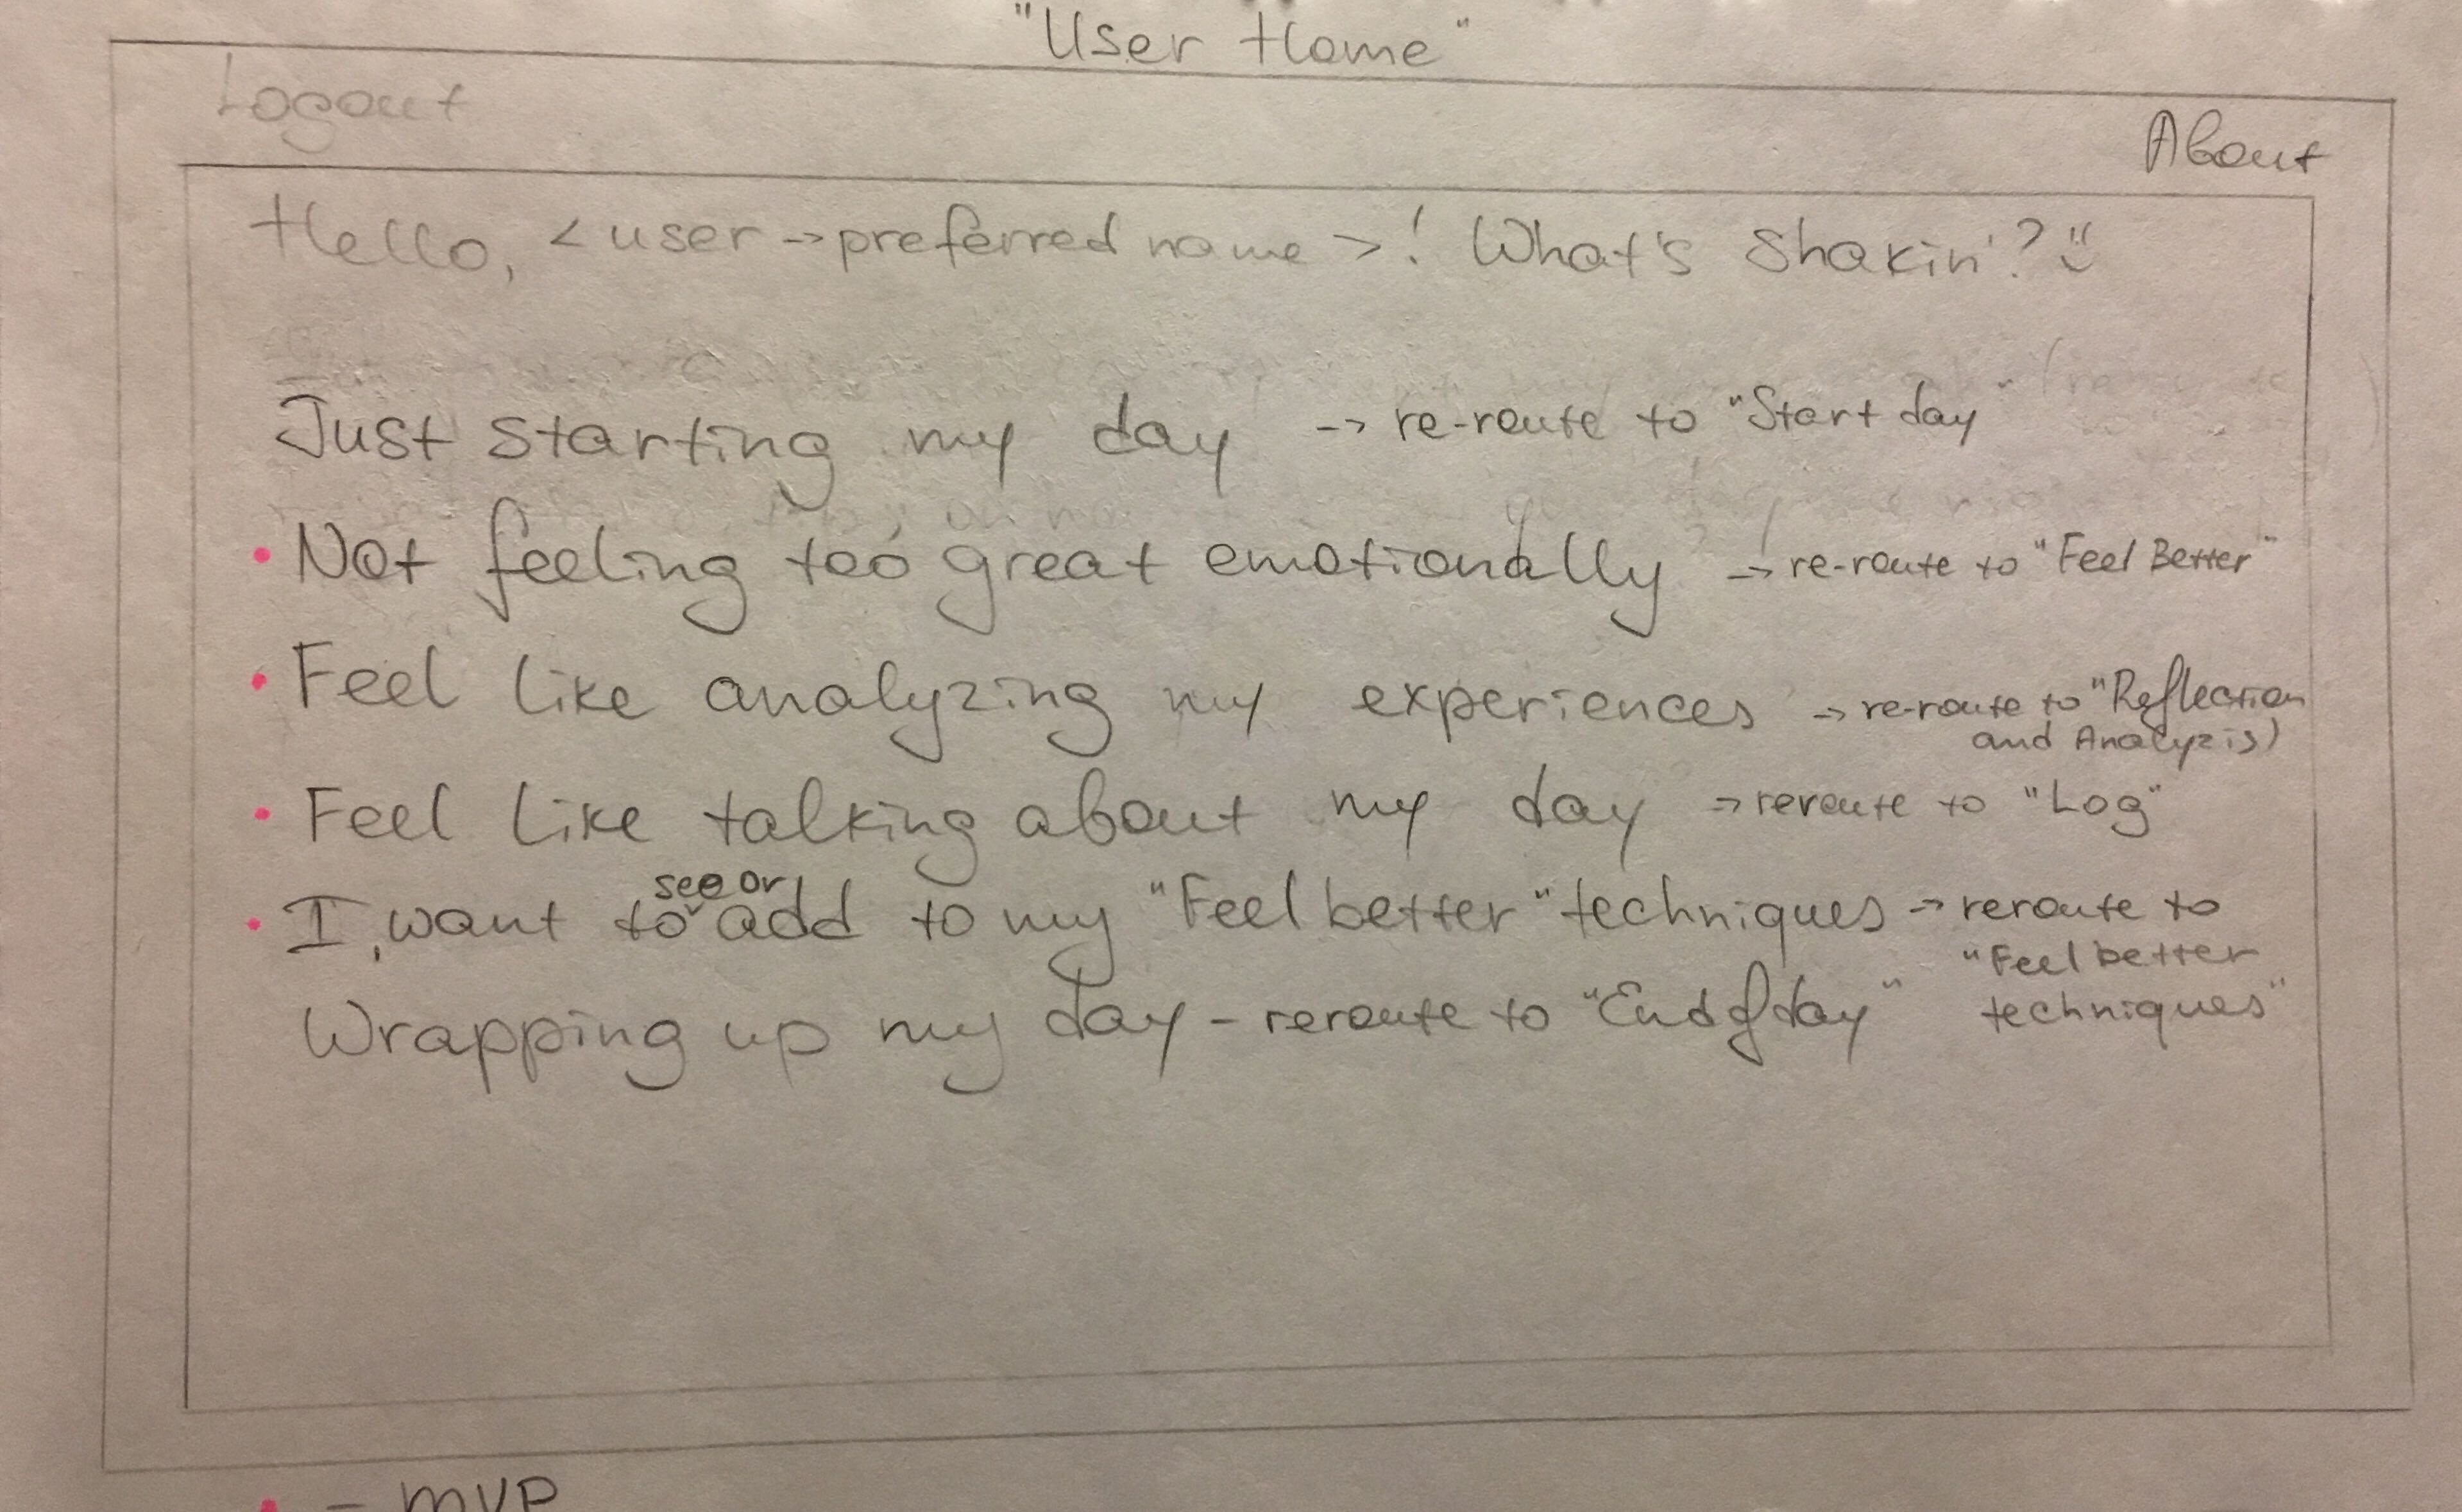 "User Home"
Logout
About
Hello, <user -> preferred name>! What's shakin'? :)
Just starting my day -> re-route to "Start day"
• Not feeling too great emotionally -> re-route to "Feel Better"
• Feel like analyzing my experiences -> re-route to "Reflection
and Analyzis)
• Feel like talking about my day -> reroute to "Log"
see or
• I want to add to my "Feel better" techniques -> reroute to
"Feel better
techniques"
Wrapping up my day - reroute to "End of day"
• - MVP